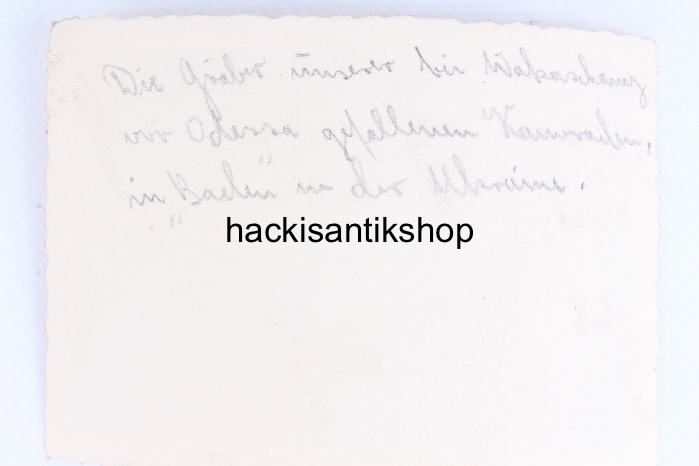 Die Gräber unserer bei
vor Odessa gefallenen Kameraden,
in „Baden" in der Ukraine.
hackisantikshop